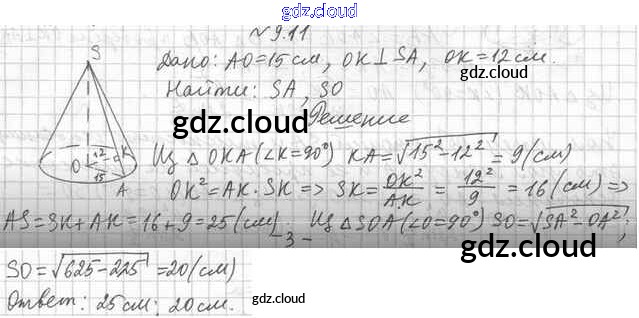 gdz.cloud
№ 9.11
S
Дано: AO=15см, OK⊥SA, OK=12см.
gdz.cloud
Найти: SA, SO
gdz.cloud
Решение
12 K
O
15
A
Из △ OKA (∠K=90°) KA=√15²-12² = 9(см)
gdz.cloud
OK²=AK·SK => SK= OK²/AK = 12²/9 = 16(см) =>
gdz.cloud
AS=SK+AK=16+9=25(см) Из △SOA(∠O=90°) SO=√SA²-OA²;
- 3 -
gdz.cloud
SO=√625-225 =20(см)
Ответ: 25см; 20см.
gdz.cloud